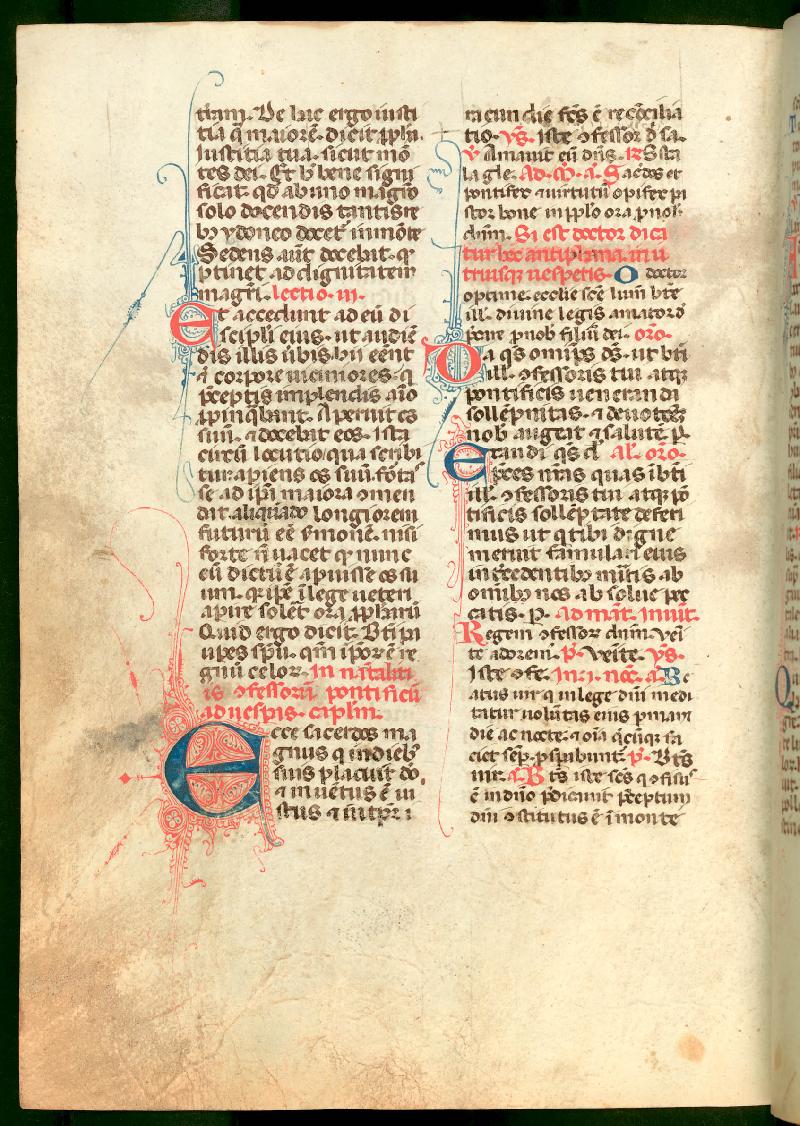 tiam. De hac ergo iusti
tia q̄ maiorē. dicit̄ p̱ pp̄hm.
Iustitia tua. sicut mō
tes dei. Et bn̄ bene signi
ficat. qd̓ ab uno magr̄o
solo docendis tantis re
bꝫ ydoneo docet̄ in mōte
Sedens aūt docebat. qđ
ꝑtinet ad dignitatem
magr̄i. lectio. iii.
Et accedunt ad eū di
scipli eius. ut audiē
dis illis ūbis. hii eēnt
⁊ corpore uiciniores. q̄
p̄ceptis implendis aīo
ꝓpinq̄bant. Aperuit os
suū. ⁊ docebat eos. Ista
circū locutio qua scribi
tur apiens os suū. fōta
se ad ip̄m maiora ꝯmen
dat. aliquādo longiorem
futurū eē ẜmonē. nisi
forte n̄ uacet qđ nunc
eū dictū ē apuisse os su
um. qđ ip̄e ī lege ueteri
apire solēt ora ꝓphetarū
Quid ergo dicit. Bt̄i pau
ꝑes spū. qm̄ ipōr̄ ē re
gnū celor̄. In natalitiis
is ꝯfessorū pontificū
ad uesp̄is. capl̄m.
Ecce sacerdos ma
gnus q̄ in dieb̄
suis placuit do,
⁊ inuentus ē iu
stus ⁊ in tp̄r i
racundie f̄cs ē recōcilia
tio. ℣s. Iste ꝯfessor d̄ sa.
℣. Amauit eū dn̄s. ℟. Sta
la gl̄e. Ad. M̄. a. Sac̄dos et
pontifex ⁊ uirtutū opifex pa
stor bone in pp̄lo ora p̱ nob̄
dn̄m. Si est doctor dici
tur hec antiphona. in u
triusq̄ uesp̄is. O doctor
optime. eccl̄ie sc̄e lum̄ bt̄e
ill̄. diuine legis amator d̄
p̄care p̱ nob̄ filiū dei. or̄o.
Da q̄s om̄ps ds̄. ut bt̄i
ill̄. ꝯfessoris tui atq̄
pontificis ueneranda
sollēpnitas. ⁊ deuotōeꝫ
nob̄ augeat ⁊ salutē. p̱.
Exaudi q̄s d̄. Al̄. or̄o.
p̄ces nr̄as quas ī bt̄i
ill̄. ꝯfessoris tui atq̄ pō
tificis sollēpnitate deferi
mus ut q̄ tibi digne
meruit famulari eius
int̄cedentibꝫ mītis ab
om̄ibꝫ nos absolue pec
catis. p̱. Ad mat̄. Inuit̄.
Regem ꝯfessor̄ dn̄m. Veī
te adorem̄. p̄. Veīte. ℣s.
Iste ꝯfe. In. i. noc̄. a. Be
atus uir q̄ in lege dn̄i medi
tatur uolūtas eius p̄manꝫ
die ac nocte. ⁊ oīa q̄cūq̄ fa
ciet sep̄. ꝓsp̄abunt̄. p̄. Bt̄s
uir. a. Bt̄s iste sc̄s q̄ ꝯfisus
ē in dn̄o p̄dicauit p̄ceptum
dn̄i ꝯstitutus ē ī monte